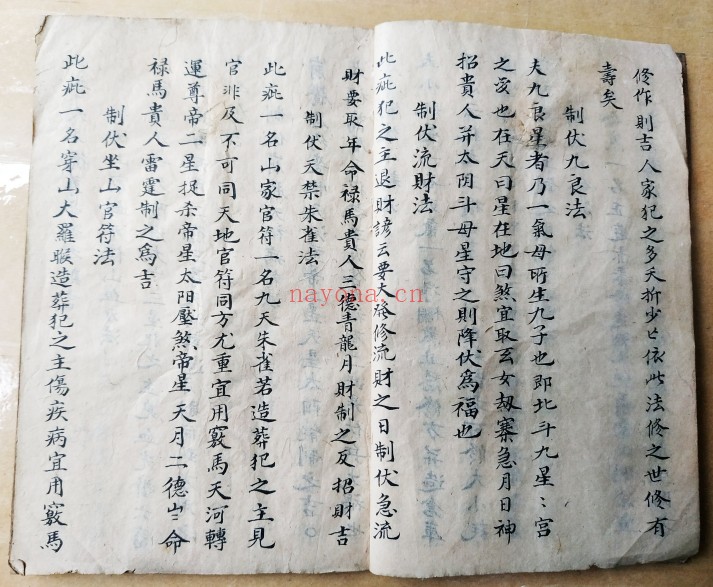 修作則吉人家犯之多夭折少亡依此法修之世修有
壽矣
制伏九良法
夫九良星者乃一氣母所生九子也即北斗九星〻宮
之爱也在天曰星在地曰煞宜取玄女刼寨急月日神
招貴人并太阴斗母星守之則降伏爲福也
制伏流財法
此疵犯之主退財諺云要大發修流財之日制伏急流
財要取年命禄馬貴人三德青龍月財制之反招財吉
制伏天禁朱雀法
此疵一名山家官符一名九天朱雀若造葬犯之主見
官非及不可同天地官符同方尤重宜用竅馬天河轉
運尊帝二星捉杀帝星太阳壓煞帝星天月二德山〻命
禄馬貴人雷霆制之爲吉
制伏坐山官符法
此疵一名穿山大羅睺造葬犯之主傷疾病宜用竅馬
nayona.cn